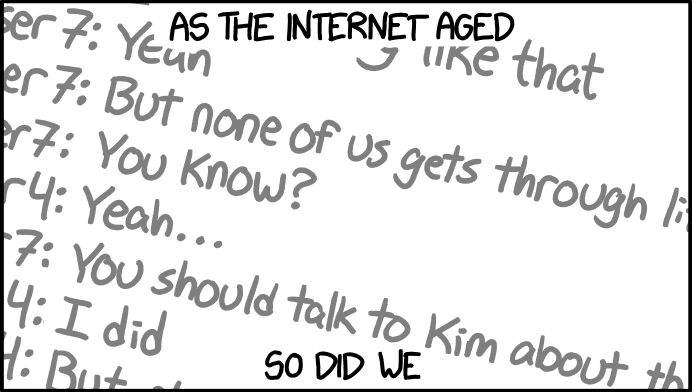 AS THE INTERNET AGED
ser 7: Yeah like that
er 7: But none of us gets through li
er7: You know?
r4: Yeah...
-7: You should talk to Kim about th
4: I did
4: But
SO DID WE